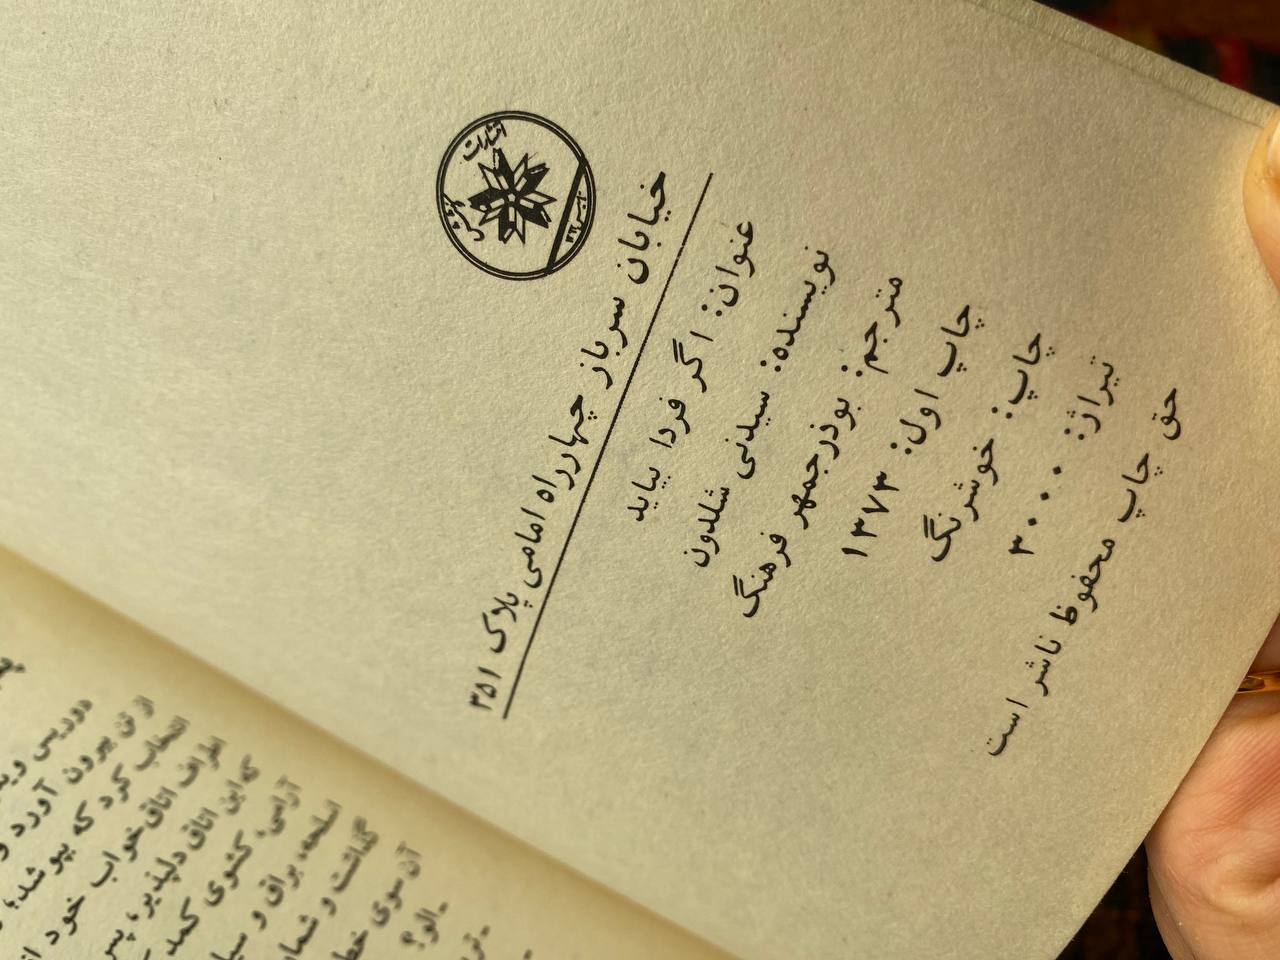 انتشارات
خیابان سرباز چهارراه امامی پلاک ۳۵۱
عنوان: اگر فردا بیاید
نویسنده: سیدنی شلدون
مترجم: بوذرجمهر فرهنگ
چاپ اول: ۱۳۷۳
چاپ: خوشرنگ
تیراژ: ۳۰۰۰
حق چاپ محفوظ ناشر است
دوریس
از تن بیرون آورد و
انتخاب کرد که بپوشد؛
اطراف اتاق خواب خود
که این اتاق دلپذیر،
آرامی، کشوی کمد
اسلحه، براق و
گذاشت و
آن سوی
-الو؟